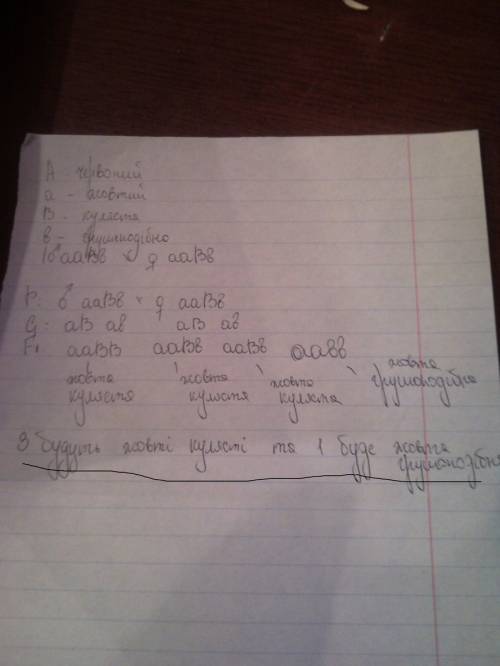 А червоний
а - жовтий
В - куляста
в - грушоподібно
♂ ааВв × ♀ ааВв
Р: ♂ ааВв × ♀ ааВв
G: аВ ав аВ ав
F₁ ааВВ ааВв ааВв аавв
жовта жовта жовта жовта
куляста куляста куляста грушоподібна
3 будуть жовті кулясті та 1 буде жовта
грушоподібна